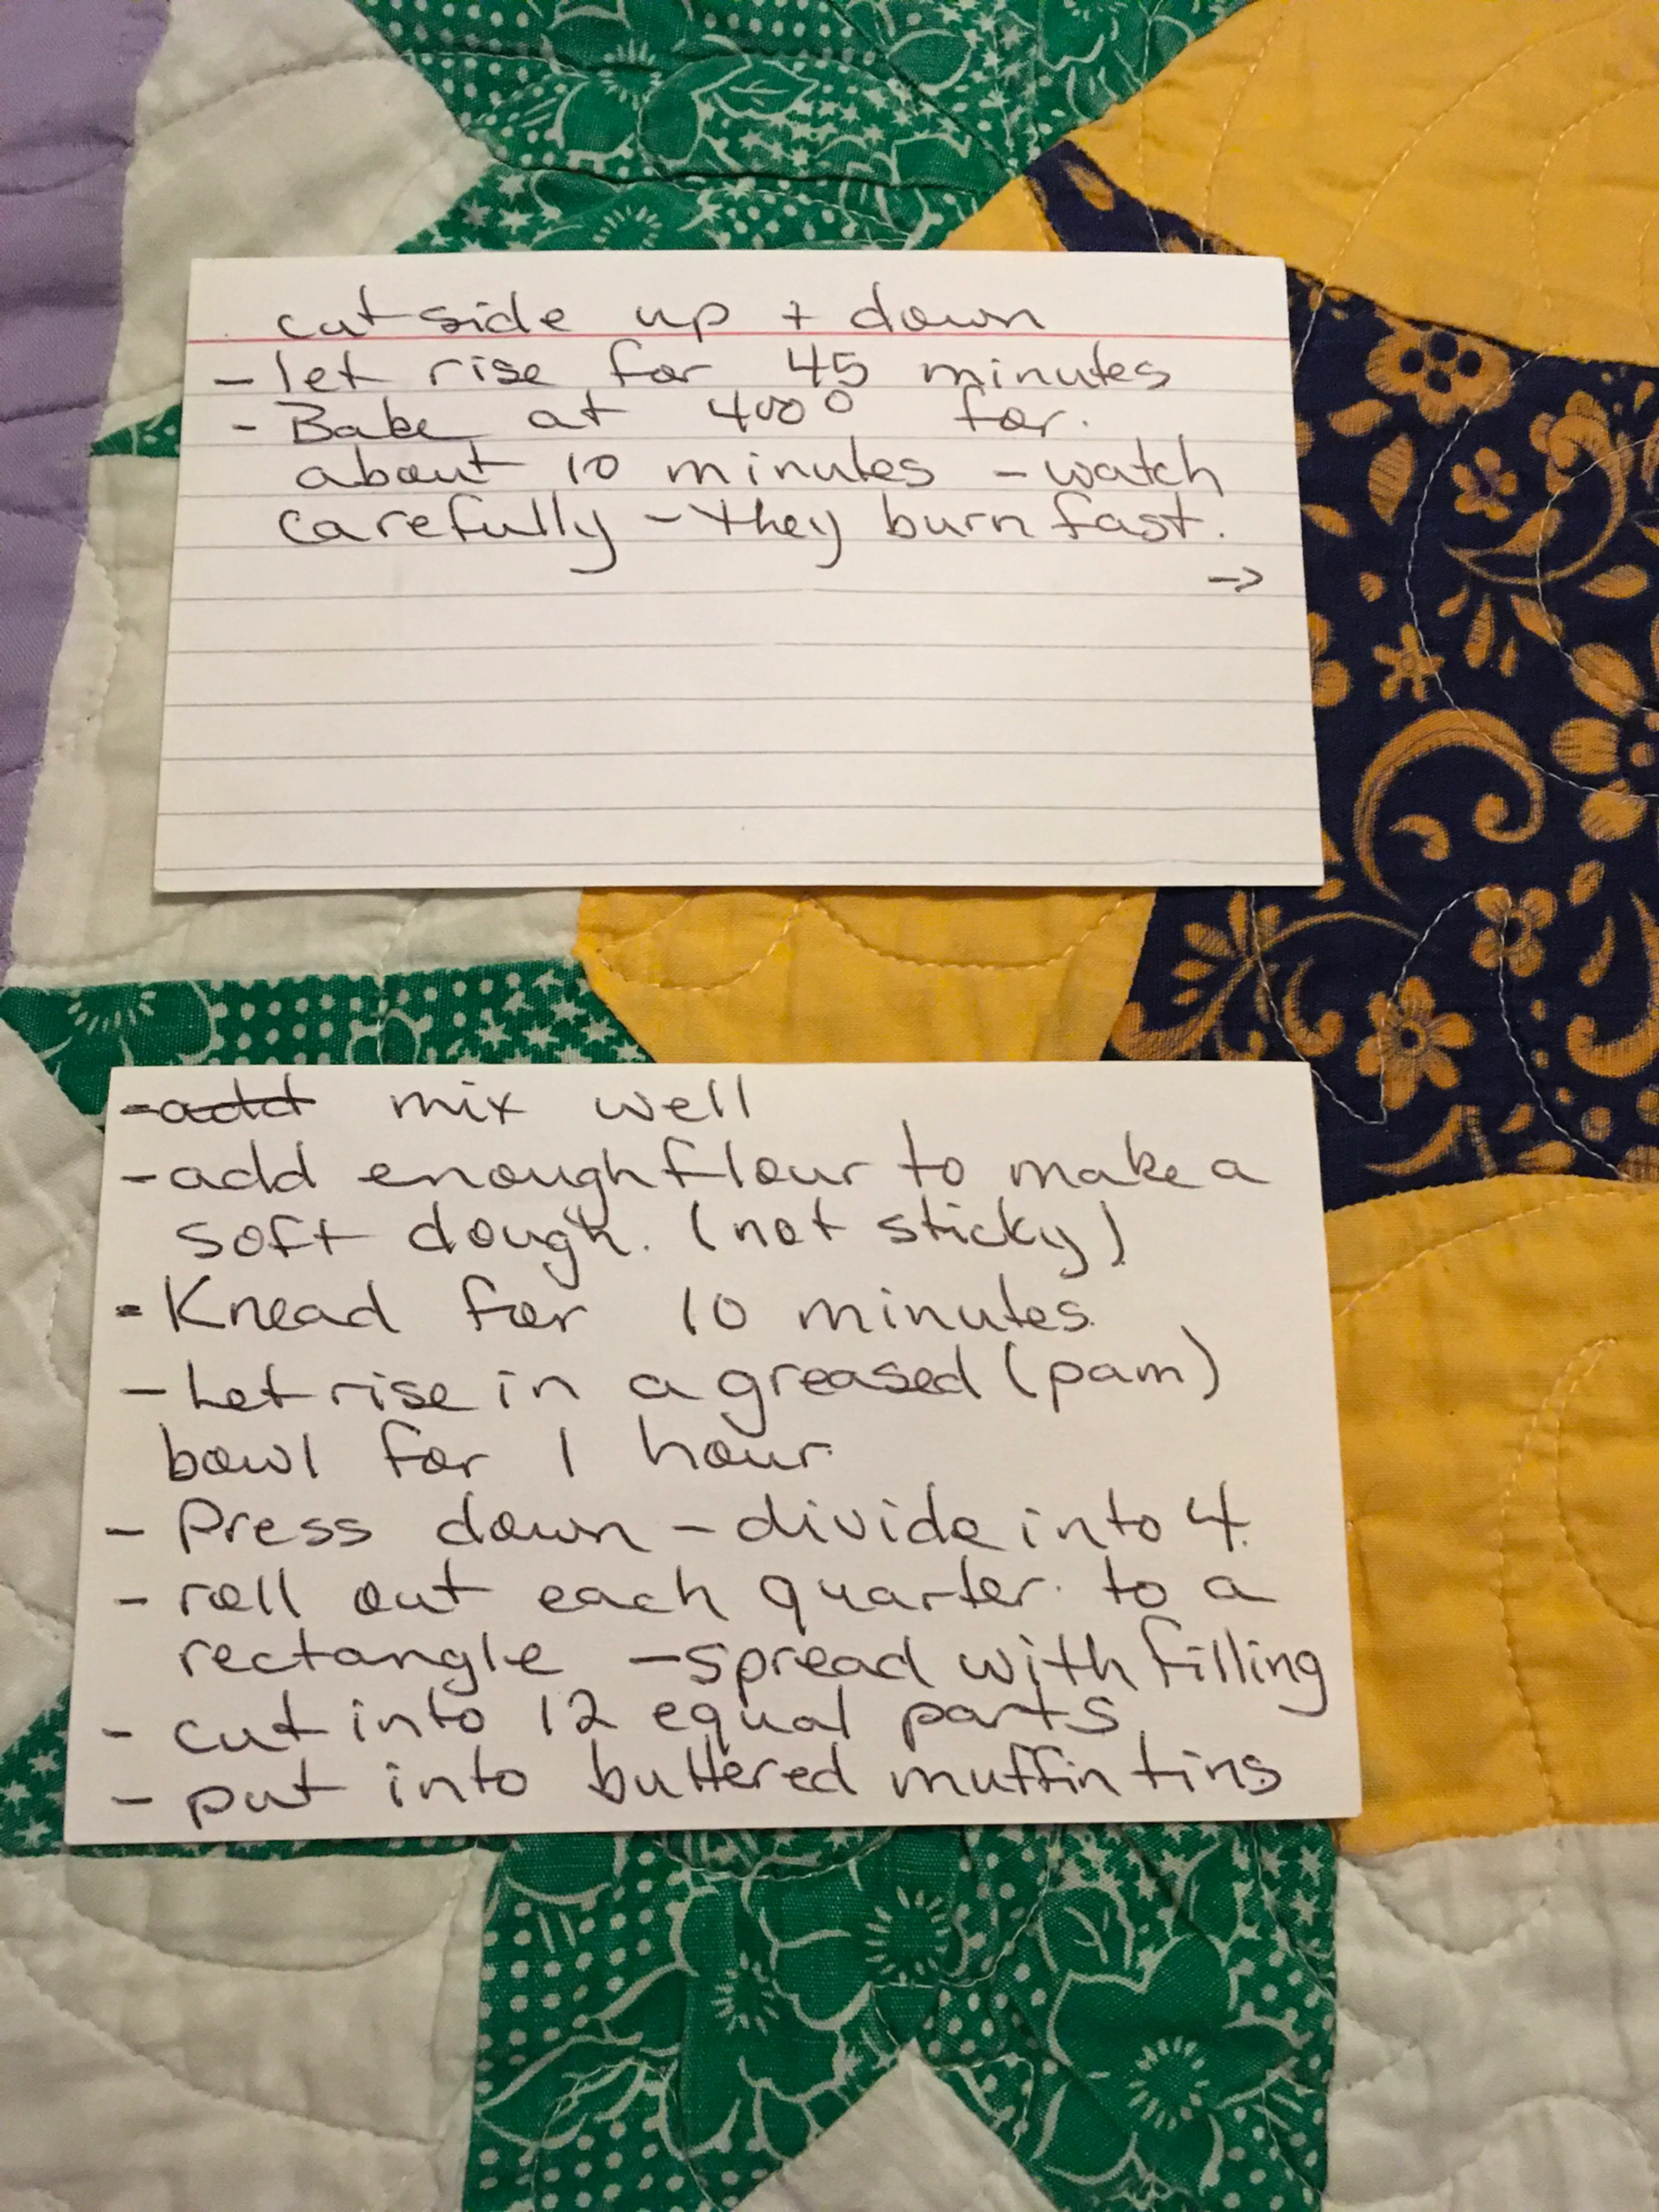 cut side up + down
- let rise for 45 minutes
- Bake at 400° for.
about 10 minutes - watch
carefully - they burn fast.
→
- add mix well
- add enough flour to make a
soft dough. (not sticky)
- Knead for 10 minutes.
- Let rise in a greased (pam)
bowl for 1 hour.
- Press down - divide into 4.
- roll out each quarter. to a
rectangle - spread with filling
- cut into 12 equal parts
- put into buttered muffin tins